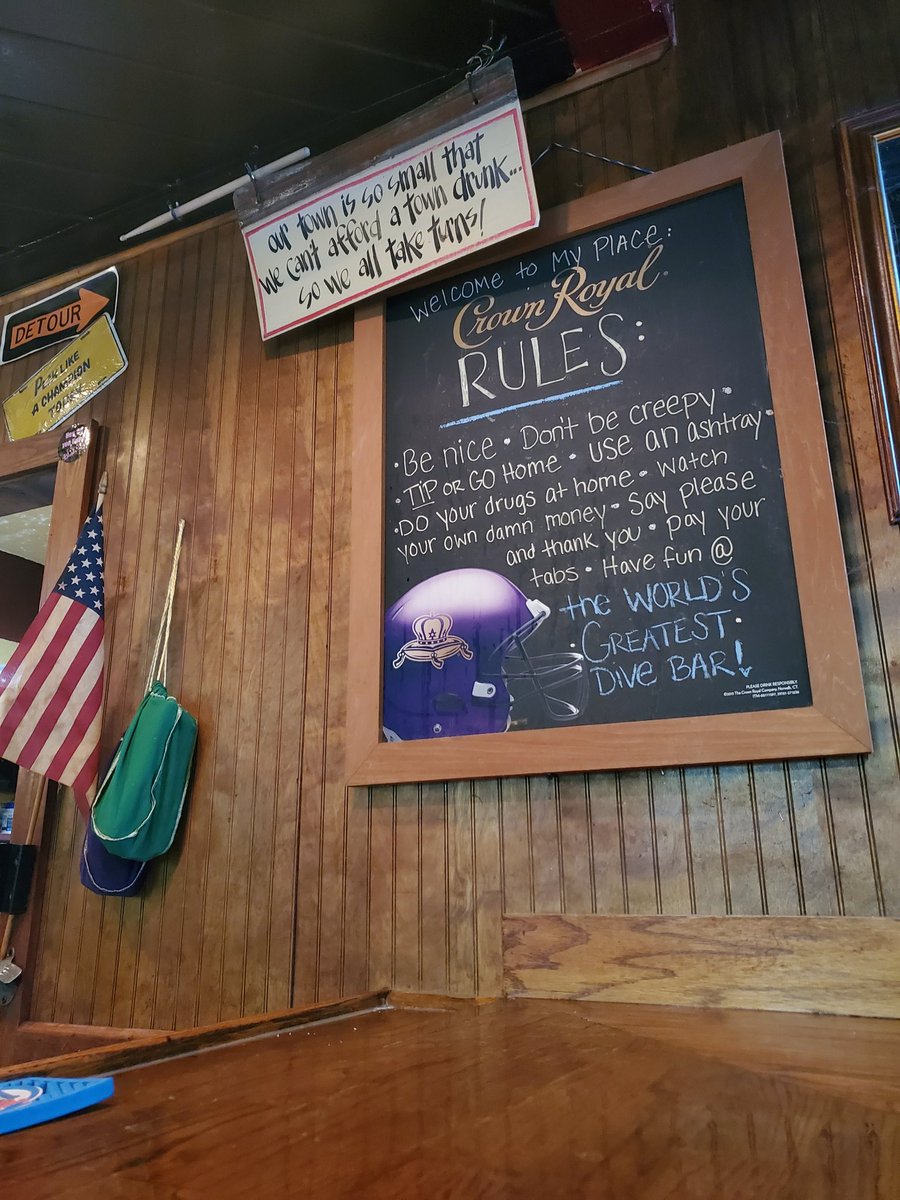 our town is so small that
we can't afford a town drunk...
so we all take turns!
DETOUR
LIKE
A CHAMPION
TODAY
Welcome to My Place:
Crown Royal
RULES:
• Be nice • Don't be creepy •
• TIP or GO Home • Use an ashtray •
• Do your drugs at home • Watch
your own damn money • Say please
and thank you • Pay your
tabs • Have fun @
the WORLD'S
GREATEST
Dive BAR!
PLEASE DRINK RESPONSIBLY.